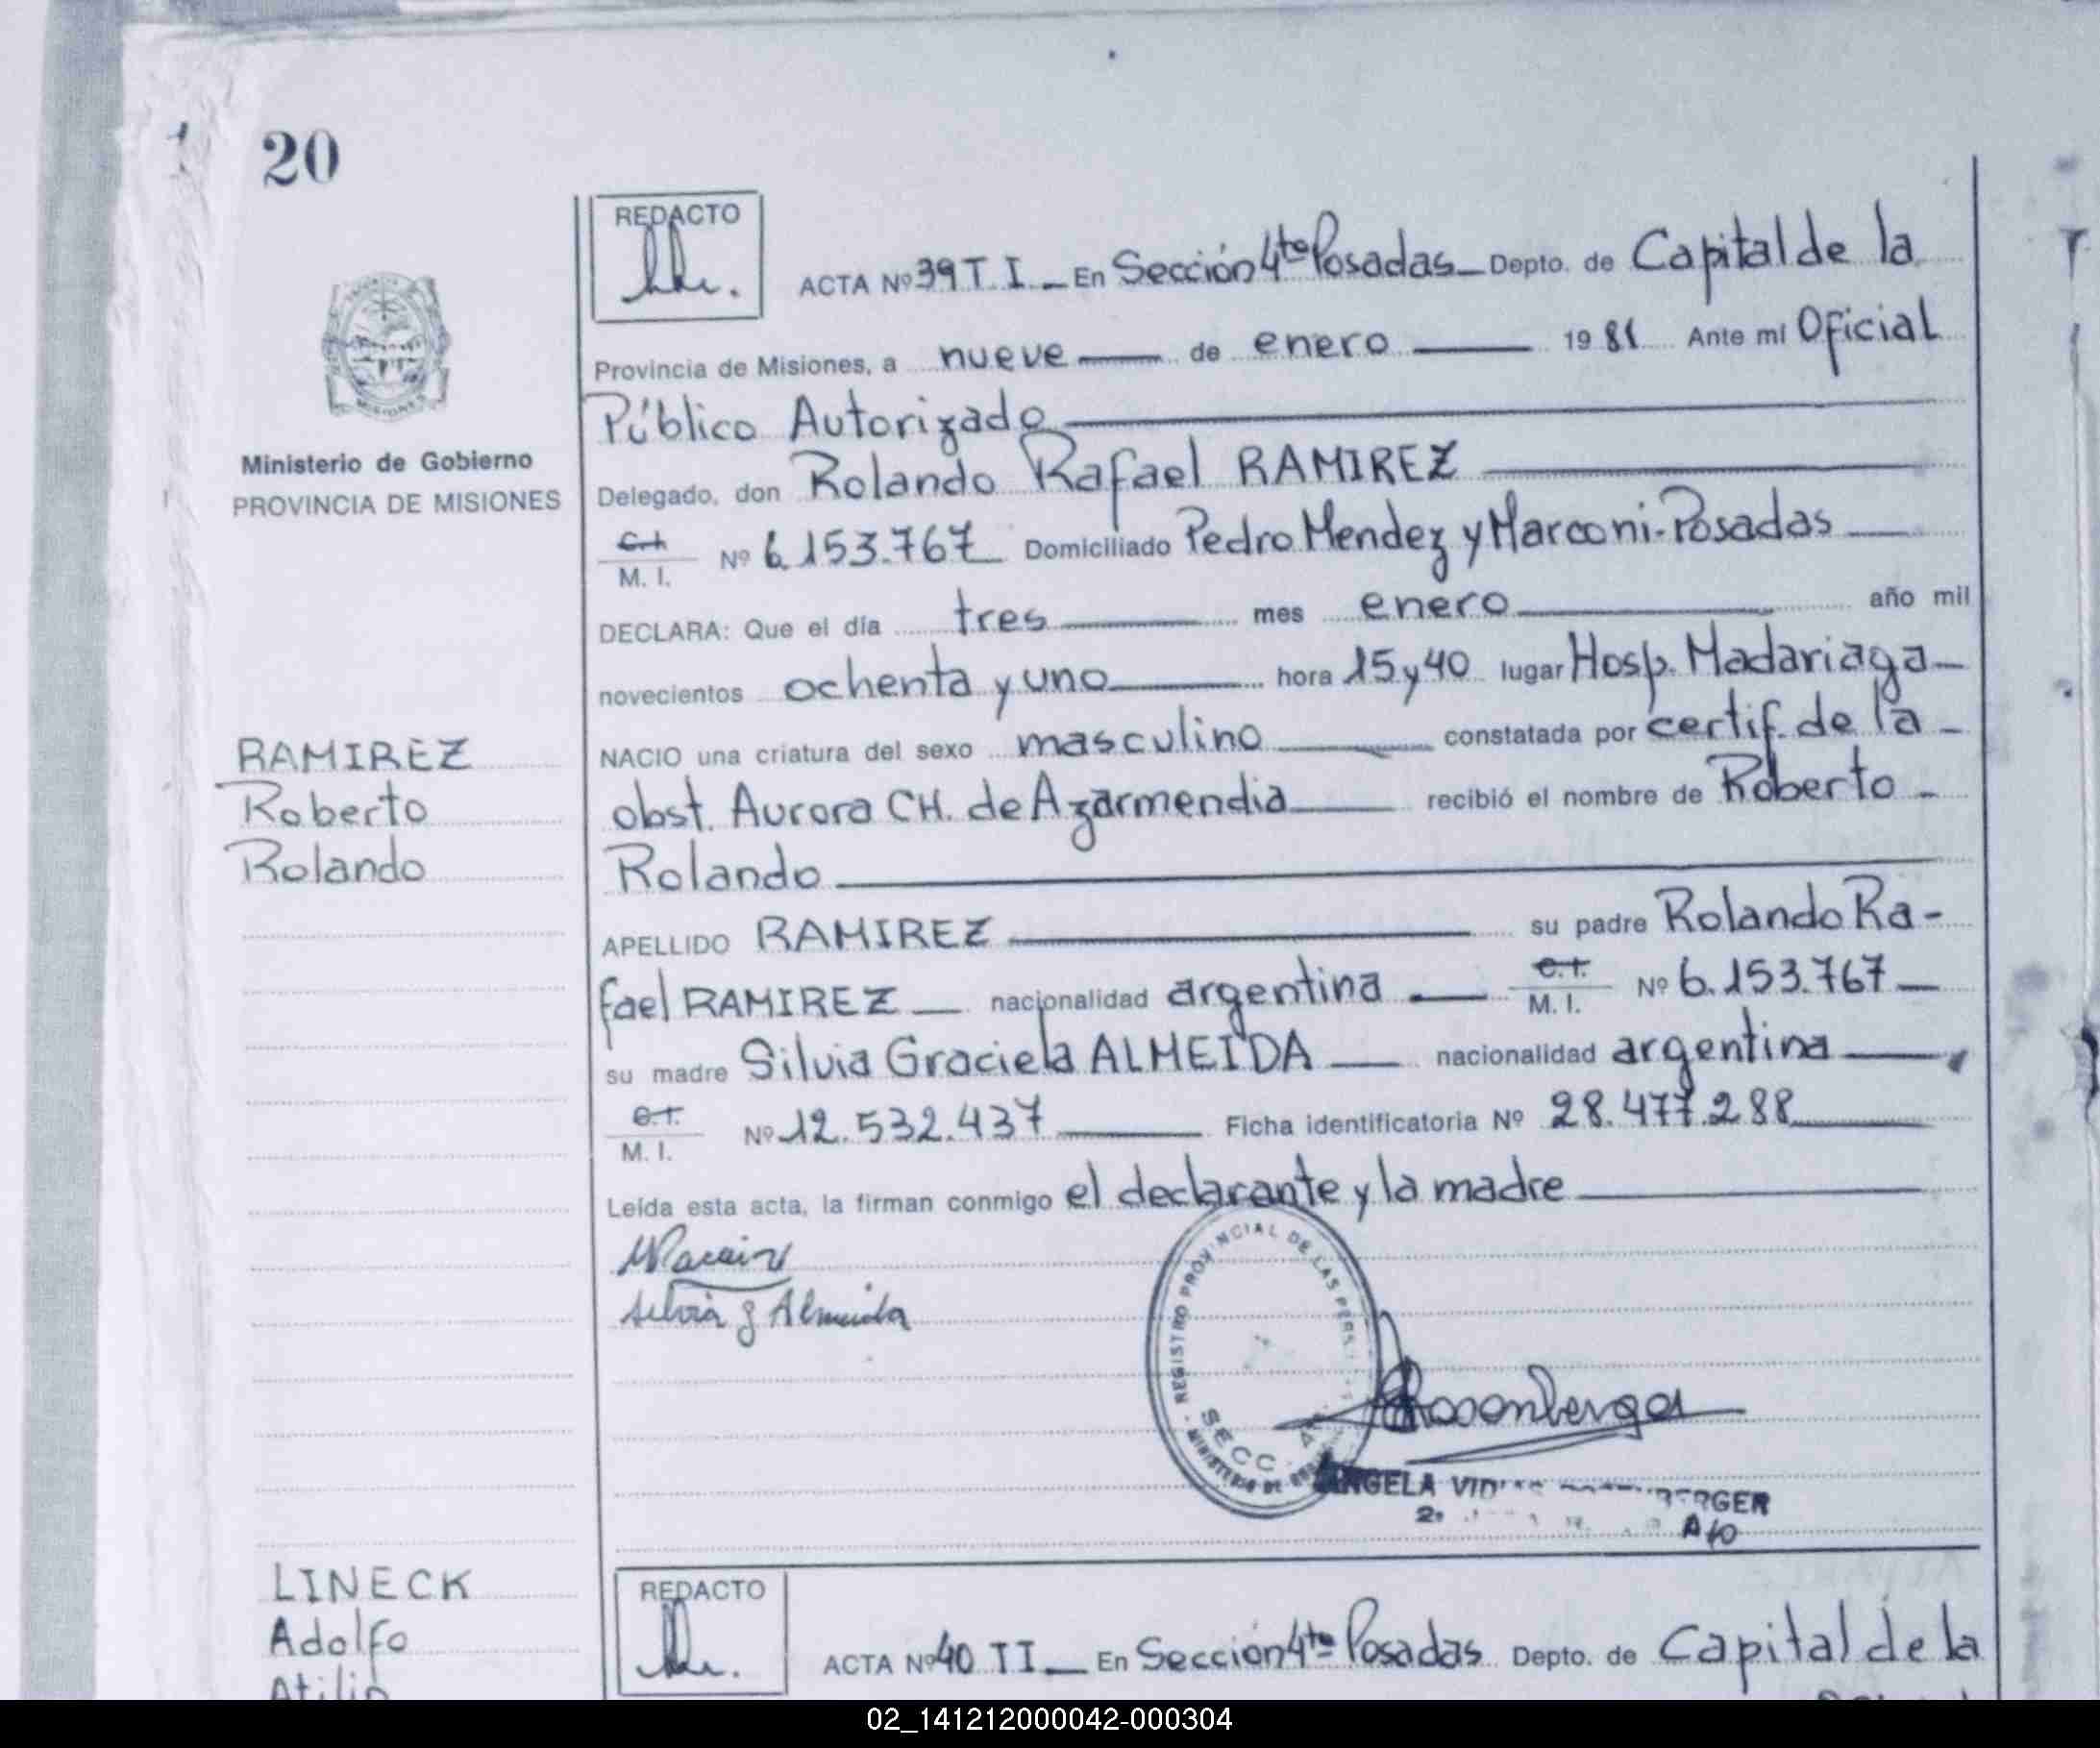 20
REDACTO
ACTA Nº 39 T. I. En Sección 4ta Posadas Depto. de Capital de la
Provincia de Misiones, a nueve de enero 1981 Ante mí Oficial
Público Autorizado
Delegado, don Rolando Rafael RAMIREZ
C.I.
M. I. Nº 6.153.767 Domiciliado Pedro Mendez y Marconi-Posadas
DECLARA: Que el día tres mes enero año mil
novecientos ochenta y uno hora 15 y 40 lugar Hosp. Madariaga
NACIO una criatura del sexo masculino constatada por certif. de la
obst. Aurora CH. de Azarmendia recibió el nombre de Roberto
Rolando
APELLIDO RAMIREZ su padre Rolando Ra-
fael RAMIREZ nacionalidad argentina C.I. M. I. Nº 6.153.767
su madre Silvia Graciela ALMEIDA nacionalidad argentina
C.I.
M. I. Nº 12.532.437 Ficha identificatoria Nº 28.477.288
Leída esta acta, la firman conmigo el declarante y la madre
Silvia G Almeida
REGISTRO PROVINCIAL DE LAS PERS
SECC
MINISTERIO DE
Rosenberger
ANGELA
BERGER
MISIONES
Ministerio de Gobierno
PROVINCIA DE MISIONES
RAMIREZ
Roberto
Rolando
LINECK
Adolfo
Atilio
REDACTO
ACTA Nº 40 T I En Sección 4ta Posadas Depto. de Capital de la
02_141212000042-000304